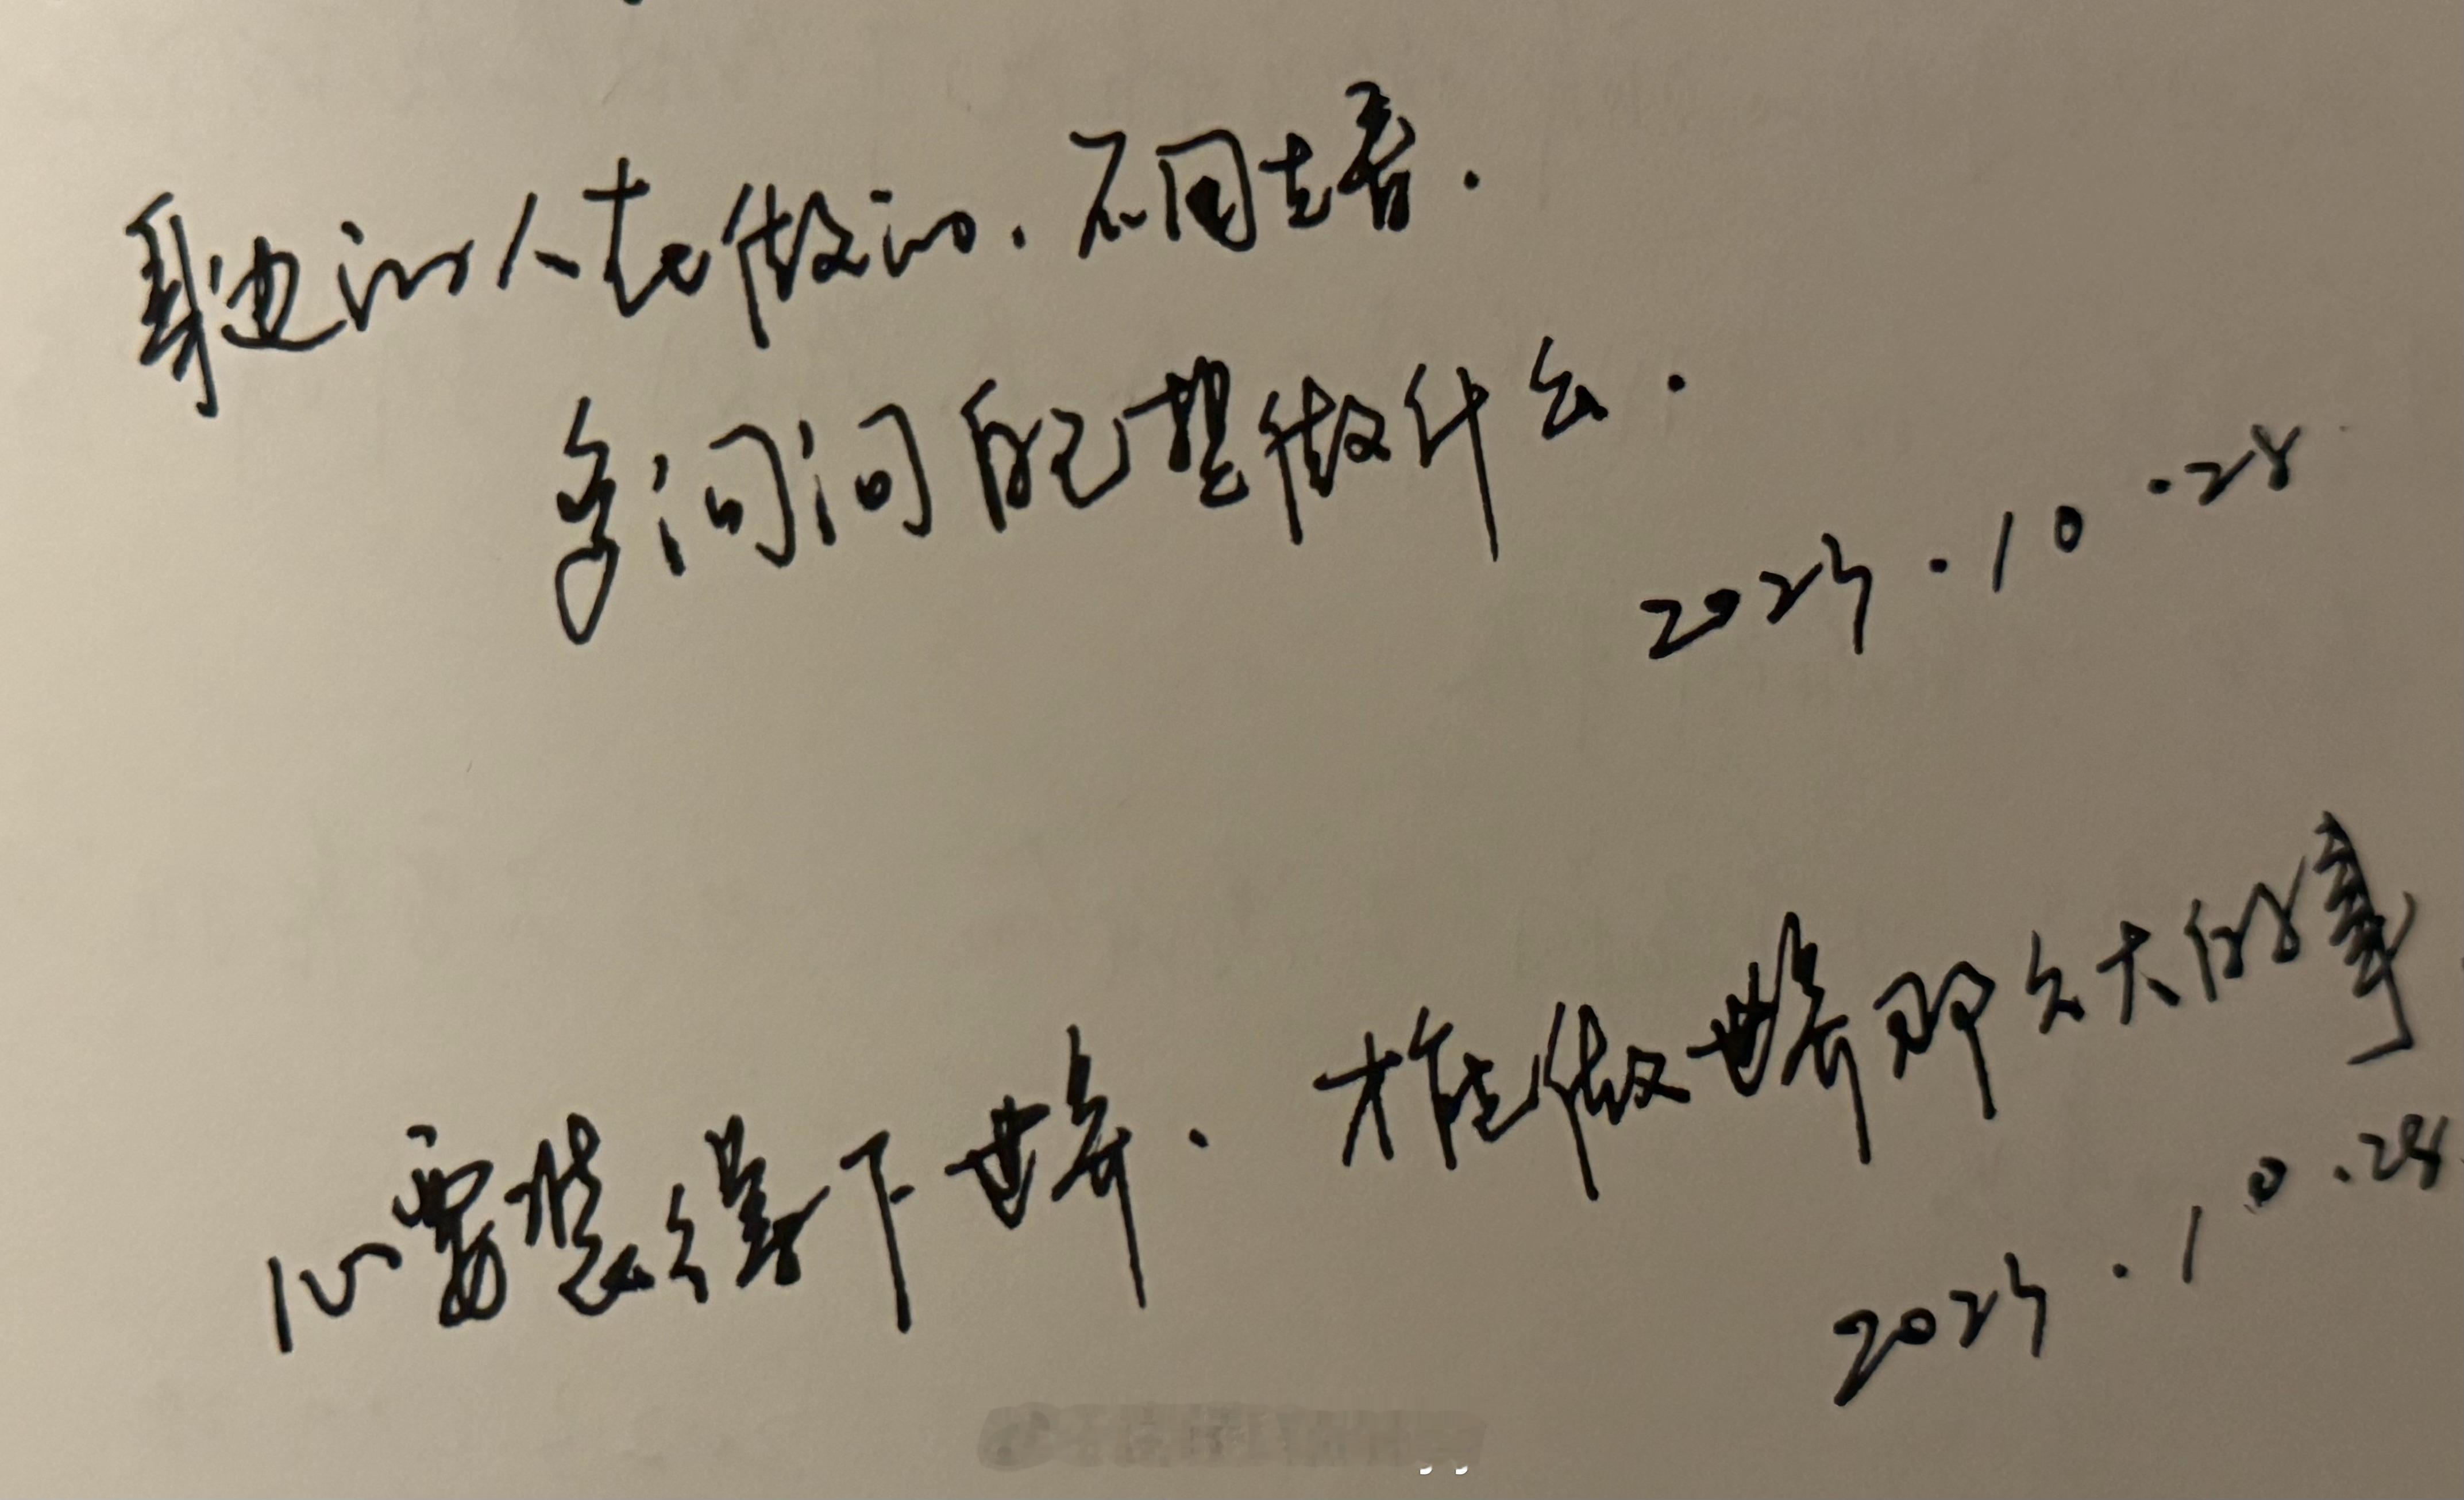 身边的人在做的.不用去看.
多问问自己想做什么.
2024.10.28
心要装得下世界.才能做世界那么大的事.
2024.10.28